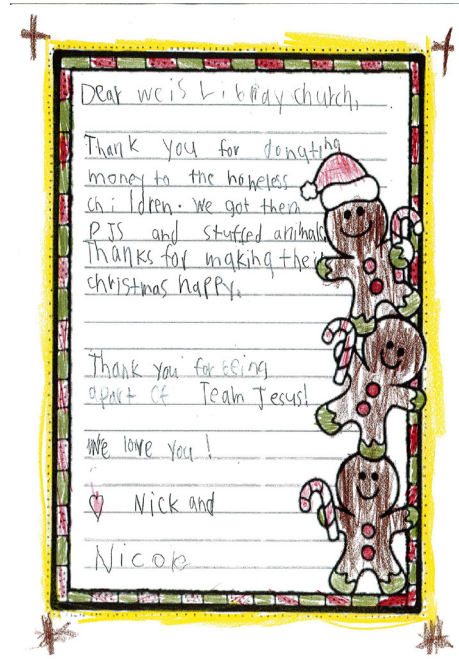 Dear weis Librday church,
Thank you for donating
money to the homeless
children. We got them
PJS and stuffed animals.
Thanks for making their
christmas happy.
Thank you for being
apart of Team Jesus!
We love you!
Nick and
Nicole